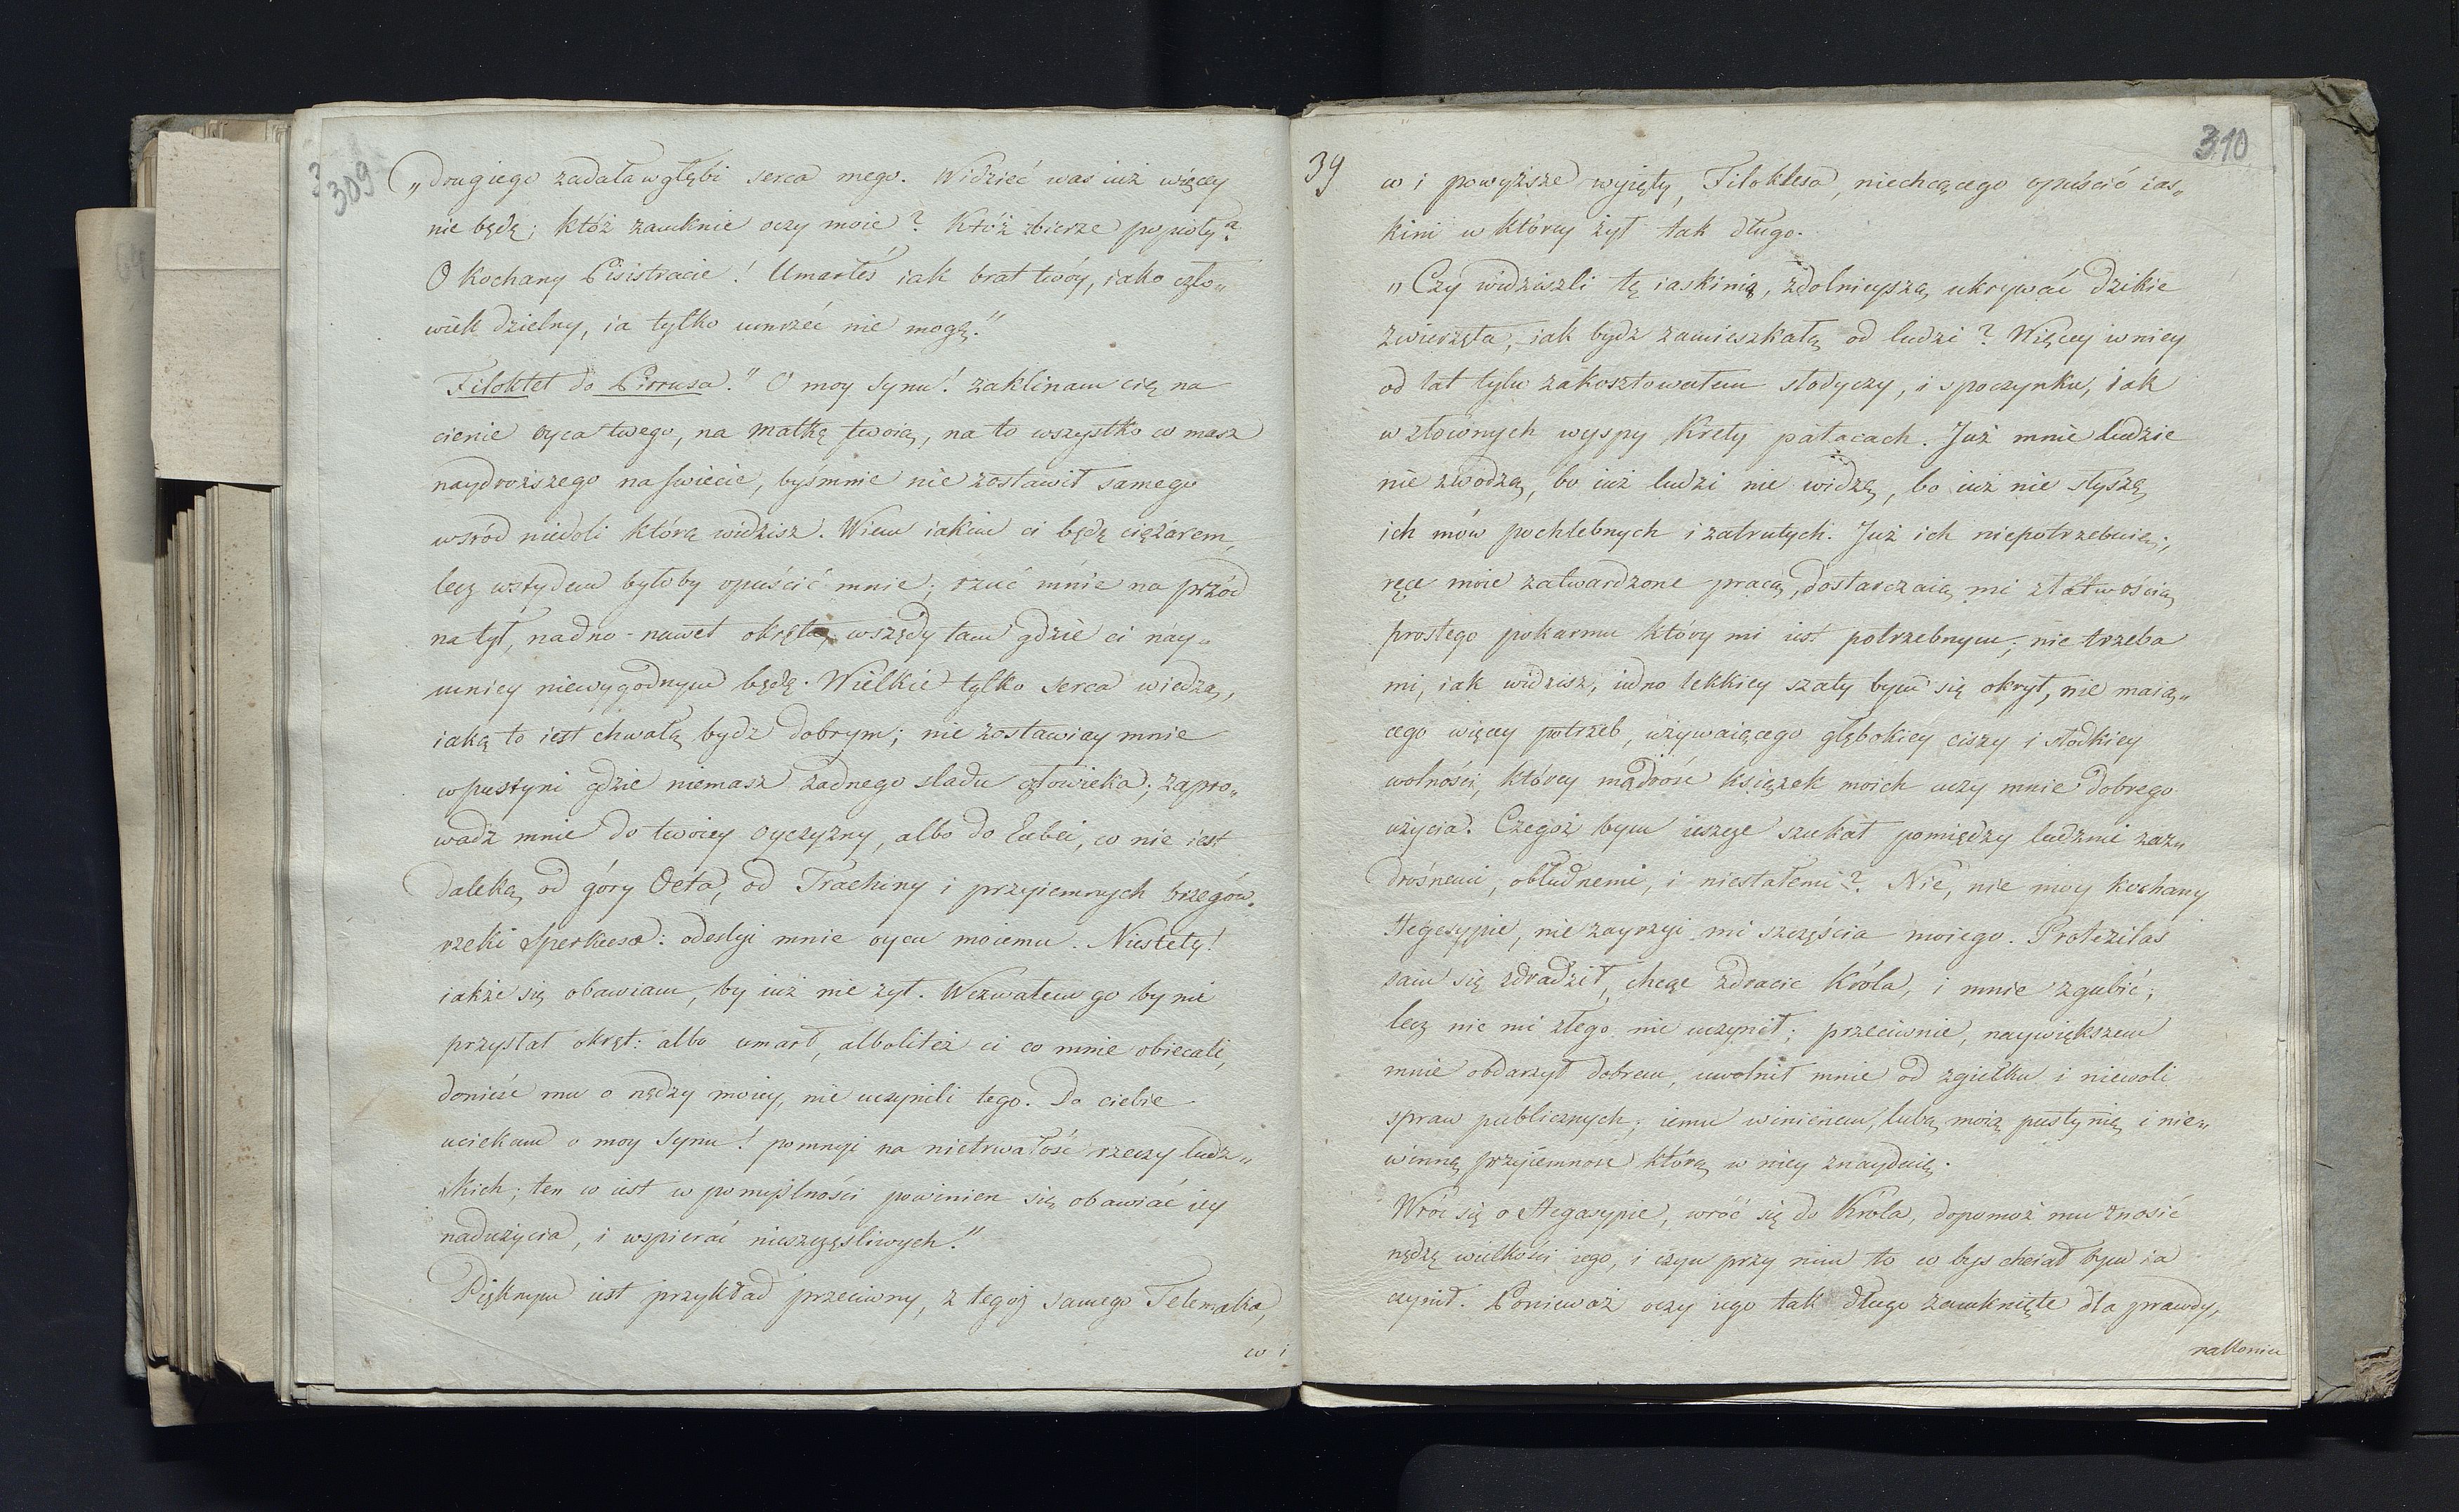 309
„drugiego zadała w głębi serca mego. Widzieć was iuż więcey
nie będę; któż zamknie oczy moie? Któż zbierze popioły?
O kochany Pisistracie! Umarłeś iak brat twóy, iako czło„
wiek dzielny, ia tylko umrzeć nie mogę."
Filoktet do Pirrusa." O moy Synu! zaklinam cię na
cienie oyca twego, na matkę twoią, na to wszystko co masz
naydroższego na świecie, byś mnie nie zostawił samego
wsród niedoli którą widzisz. Wiem iakim ci będę ciężarem,
lecz wstydem byłoby opuścić mnie; rzuć mnie na przód
na tył, na dno nawet okrętu, wszędy tam gdzie ci nay„
mniey niewygodnym będę. Wielkie tylko serca wiedzą,
iaką to iest chwałą bydz dobrym; nie zostawiay mnie
w pustyni gdzie niemasz żadnego sladu człowieka; zapro„
wadz mnie do twoiey oyczyzny, albo do Eubei, co nie iest
daleką od góry Oeta, od Trachiny i przyiemnych brzegów
rzeki Sperkeusa: odeslyi mnie oycu moiemu. Niestety!
iakże się obawiam, by iuż nie żył. Wezwałem go by mi
przysłał okręt: albo umarł, albo li też ci co mnie obiecali,
donieść mu o nędzy moiey, nie uczynili tego. Do ciebie
uciekam o moy Synu! pomnyi na nietrwałość rzeczy ludz„
kich; ten co iest w pomyślności powinien się obawiać iey
nadużycia, i wspierać nieszczęśliwych."
Pięknym iest przykład przeciwny, z tegoż samego Telemaka,
w i
39
310
w i powyższe wyięty, Filoklesa, niechcącego opuścić ias„
kini w którey żył tak długo.
„Czy widziszli tę iaskinią, zdolnieyszą ukrywać dzikie
zwierzęta, iak bydz zamieszkałą od ludzi? Więcey iw niey
od lat tylu zakosztowałem słodyczy, i spoczynku, iak
w złownych wyspy Krety pałacach. Już mnie ludzie
nie zwodzą, bo iuż ludzi nie widzę, bo iuż nie słyszę
ich mów pochlebnych i zatrutych. Już ich niepotrzebuię;
ręce moie zatwardzone pracą, dostarczaią mi z łatwością
prostego pokarmu który mi iest potrzebnym; nie trzeba
mi, iak widzisz, iedno lekkiey szaty bym się okrył, nie maią„
cego więcey potrzeb, używaiącego głębokiey ciszy i słodkiey
wolności, którey mądrość książek moich uczy mnie dobrego
użycia. Czegóż bym ieszcze szukał pomiędzy ludzmi zaz„
drośnemi, obłudnemi, i niestałemi? Nie, nie moy kochany
Hegesypie, nie zayrzyi mi szczęścia moiego. Protezilas
sam się zdradził, chcąc zdradzić Króla, i mnie zgubić;
lecz nic mi złego nie uczynił; przeciwnie, naywiększem
mnie obdarzył dobrem, uwolnił mnie od zgiełku i niewoli
spraw publicznych; iemu winienem, lubą moią pustynią i nie„
winną przyiemność którą w niey znayduię.
Wróć się o Hegasypie, wróć się do Króla, dopomoż mu znosić
nędzę wielkości iego, i czyń przy nim to co byś chciał bym ia
czynił. Ponieważ oczy iego tak długo zamknięte dla prawdy,
nakoniec